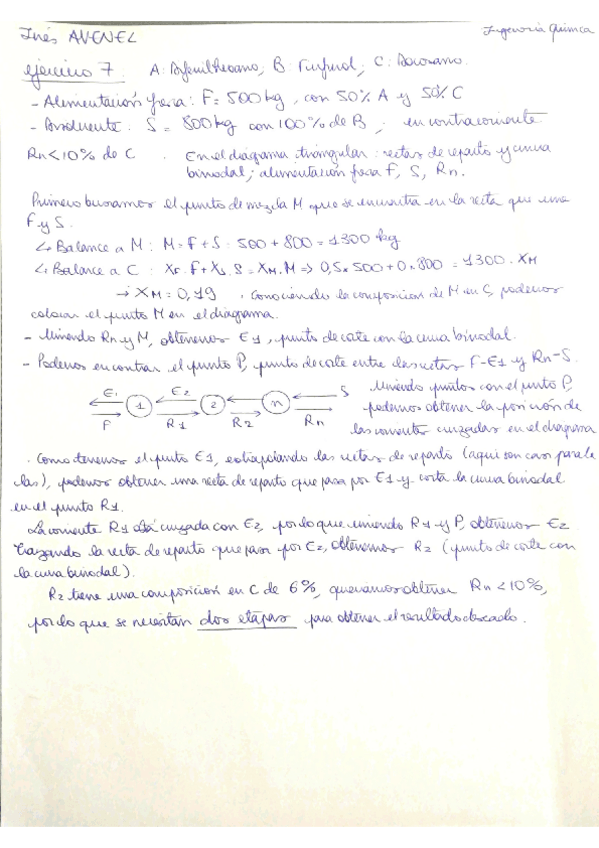 Inés AVENEL
Ingeniería Química
ejercicio 7. A: Difenilhexano, B: Furfural, C: Docosano.
- Alimentación fresca: F = 500 kg, con 50% A y 50% C
- Disolvente: S = 800 kg con 100% de B; en contracorriente
Rn < 10% de C. En el diagrama triangular: rectas de reparto y curva
binodal; alimentación fresca F, S, Rn.
Primero buscamos el punto de mezcla M que se encuentra en la recta que une
F y S.
↳ Balance a M: M = F + S = 500 + 800 = 1300 kg
↳ Balance a C: XF · F + XS · S = XM · M => 0,5 × 500 + 0 × 800 = 1300 · XM
→ XM = 0,19, conociendo la composición de M en C, podemos
colocar el punto M en el diagrama.
- Uniendo Rn y M, obtenemos E1, punto de corte con la curva binodal.
- Podemos encontrar el punto P, punto de corte entre las rectas F-E1 y Rn-S.
E1 E2 S
1 2 n
F R1 R2 Rn
Uniendo puntos con el punto P,
podemos obtener la posición de
las corrientes cruzadas en el diagrama
. Como tenemos el punto E1, extrapolando las rectas de reparto (aquí son casi parale
las), podemos obtener una recta de reparto que pasa por E1 y corta la curva binodal
en el punto R1.
La corriente R1 está cruzada con E2, por lo que uniendo R1 y P, obtenemos E2
Trazando la recta de reparto que pasa por E2, obtenemos R2 (punto de corte con
la curva binodal).
R2 tiene una composición en C de 6%, queríamos obtener Rn < 10%,
por lo que se necesitan dos etapas para obtener el resultado deseado.